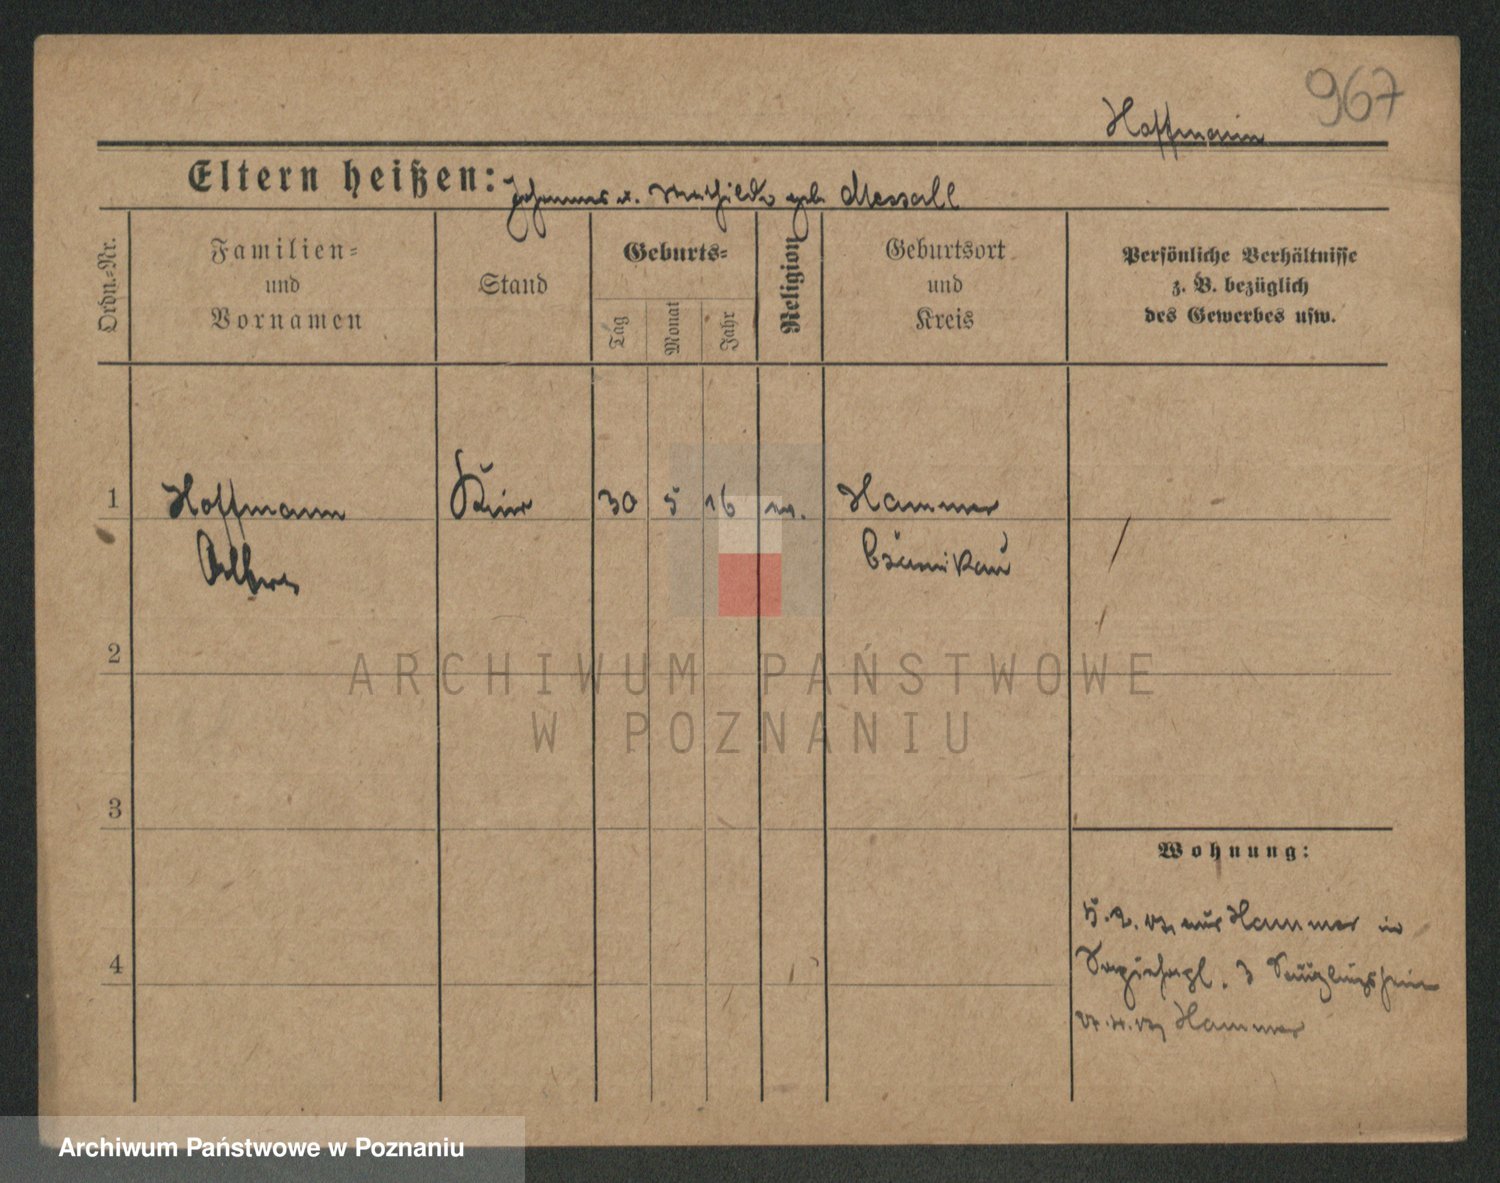 967
Hoffmann
Eltern heißen: Johannes u. Mathilde geb. Messall
Ordn.-Nr.
Familien-
und
Vornamen
Stand
Geburts-
Tag
Monat
Jahr
Religion
Geburtsort
und
Kreis
Persönliche Verhältnisse
z. B. bezüglich
des Gewerbes usw.
1 Hoffmann 30 5 16 Hammer
Czarnikau
2
ARCHIWUM PAŃSTWOWE
W POZNANIU
3
Wohnung:
5.2. aus Hammer in
4
Sapiehapl. 3 Säuglingsheim
Hammer
Archiwum Państwowe w Poznaniu